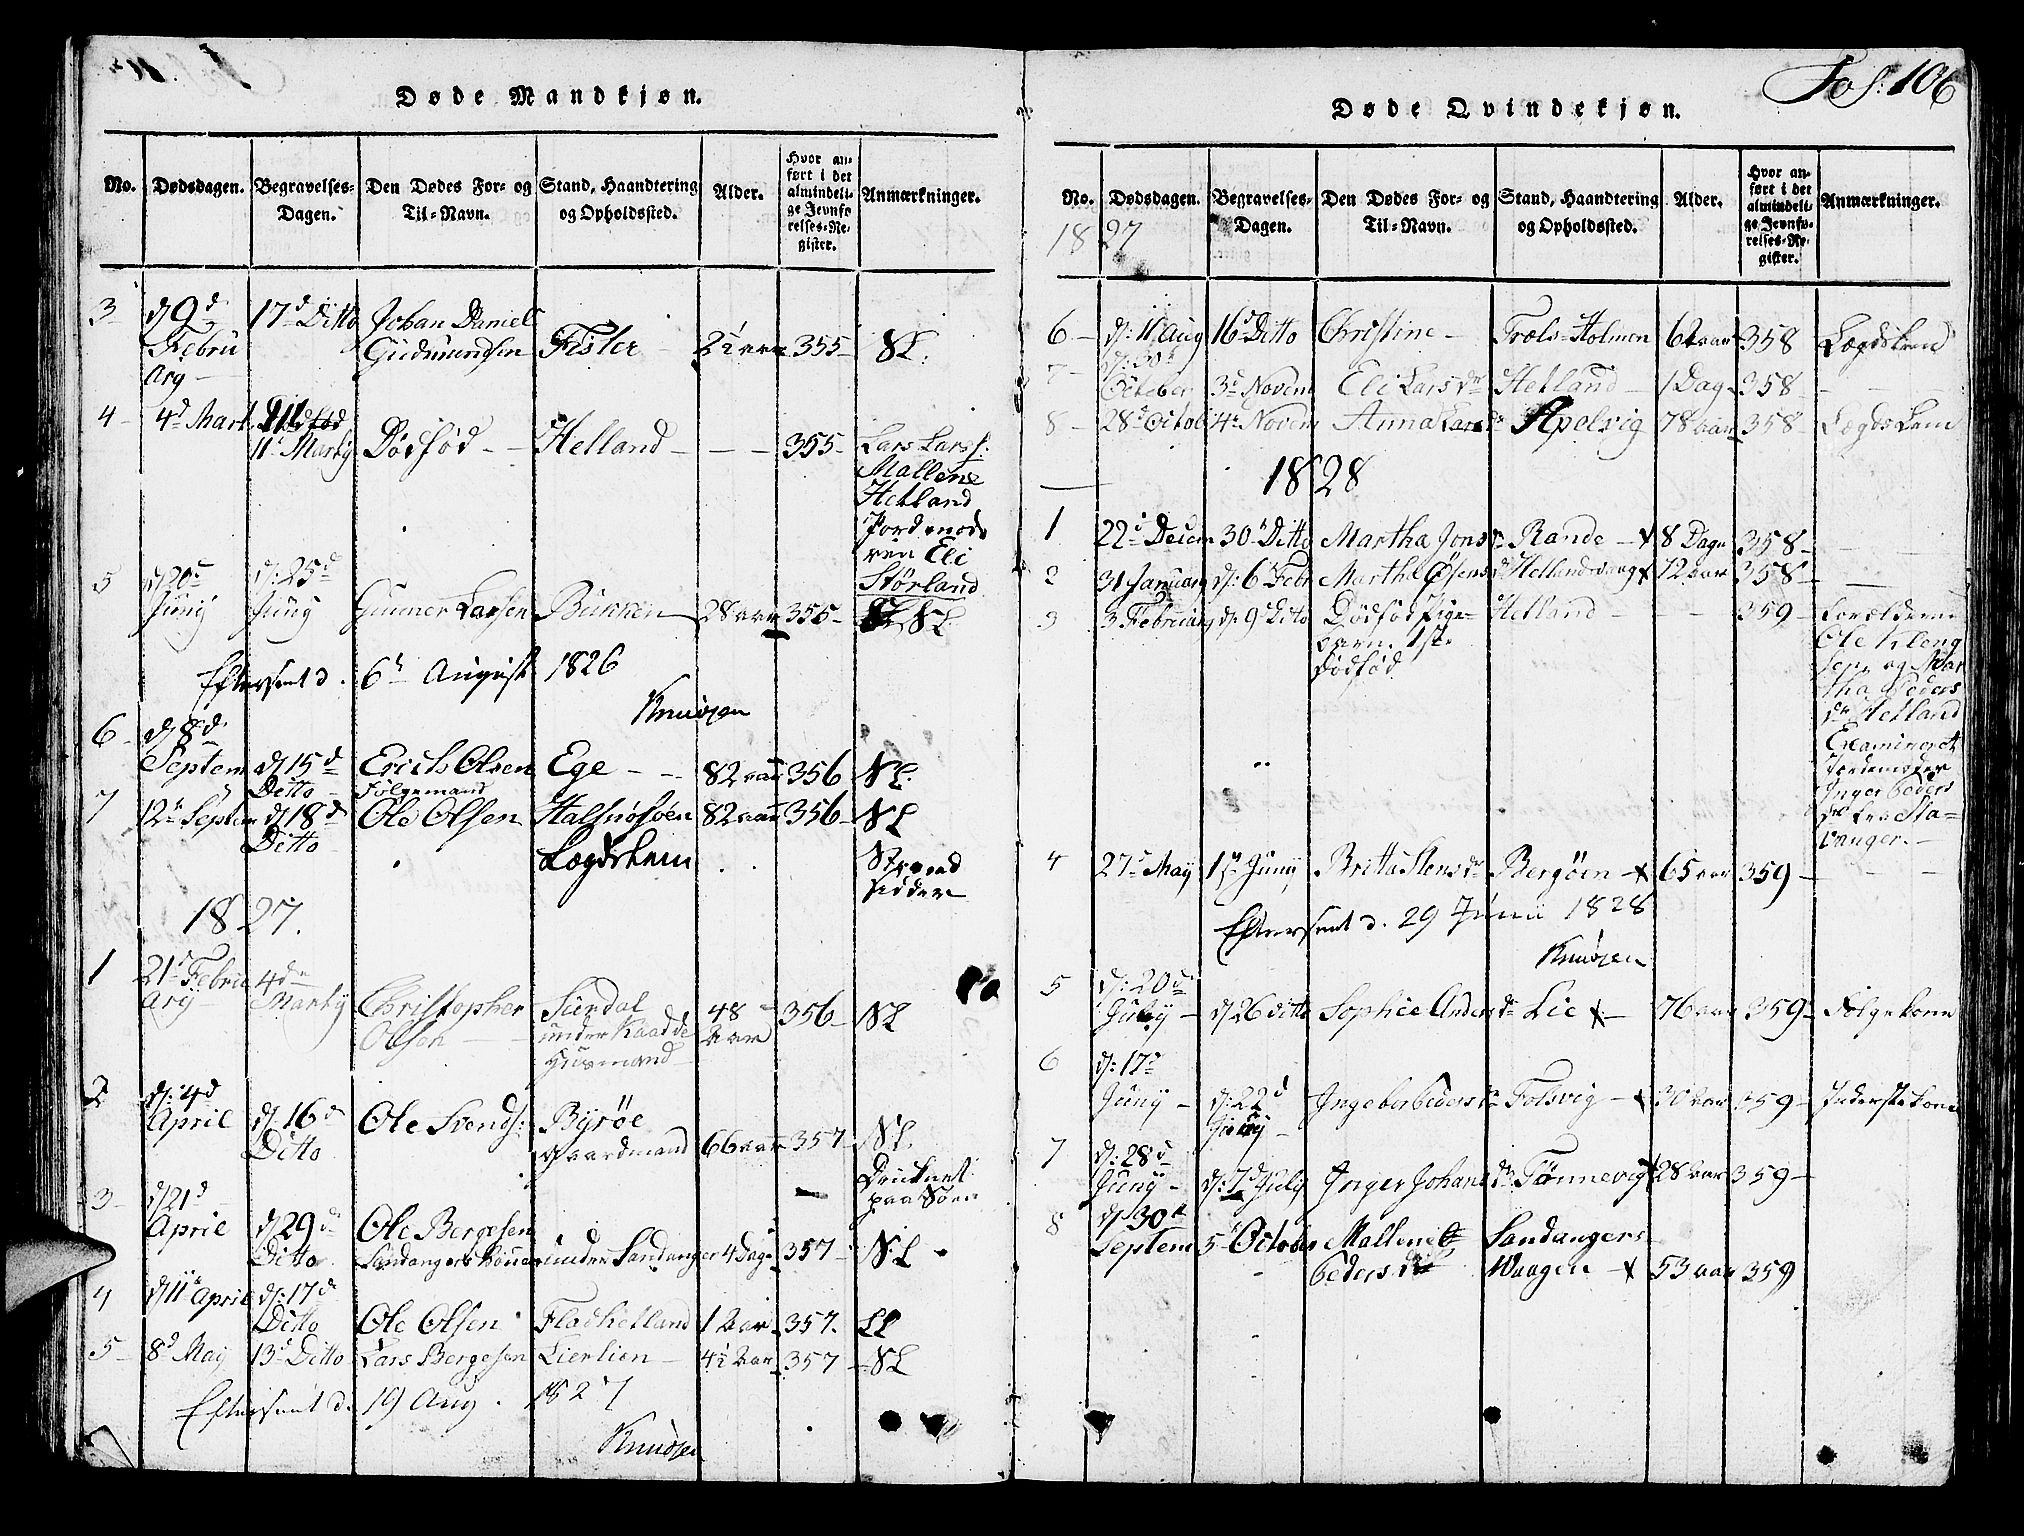 Fol: 106
Døde Mandkjøn.
No. Dødsdagen. Begravelses-Dagen. Den Dødes For- og Til-Navn. Stand, Haandtering og Opholdssted. Alder. Hvor anført i det almindelige Jevnførelses-Register. Anmærkninger.
3 d 9d Februarÿ 17d Ditto Johan Daniel Gudmundsen Fister 2½ aar 355 NL.
4 4d Mart 11d Martÿ Dødfød Helland 355 Lars Larss: Mallene Helland Jordmoderen Eli Størland
5 d 20d Junÿ d: 25d Junÿ Gunner Larsen Bukken 28 aar 355 NL
Efterseet d. 6te August 1826
Knudzen
6 d 8d Septem d 15d Ditto Erich Olsen Følgemand Ege 82 aar 356 NL.
7 12te Septem d 18d Ditto Ole Olsen Halsnøsøen Lægdslem 82 aar 356 NL Strand sidder
1827.
1 21d Februarÿ 4de Martÿ Christopher Olsen Sundal under Kaadde Husmand 48 Aar 356 NL
2 d: 4d April d 16d Ditto Ole Svends: Byrøe Gaardmand 66 aar 357 NL. Druknet paa Søen
3 d 21d April d 29d Ditto Ole Bergesen Sandanger under Sandanger 4 Dage 357 NL
4 d 11te April d: 17d Ditto Ole Olsen Fladhelland 1 Aar 357 LL
5 8d Maÿ 13d Ditto Lars Bergesen Lierlien 4½ Aar 357 NL
Efterseet d. 19 Aug. 1827
Knudzen
Døde Qvindekjøn.
No. Dødsdagen. Begravelses-Dagen. Den Dødes For- og Til-Navn. Stand, Haandtering og Opholdssted. Alder. Hvor anført i det almindelige Jevnførelses-Register. Anmærkninger.
1827
6 d: 11 Aug 16d Ditto Christine Træls-Holmen 62 aar 358 Lægdslem
7 d: 30te October 3d Novem Eli Larsdr Hetland 1 Dag 358
8 28d Octob 4de Novem Anna Larsdr Apelvig 78 aar 358 Lægdslem
1828
1 22d Decem 30te Ditto Martha Jonsdr Rande 8 Dage 358
2 31 Januarÿ d: 6te Febr Martha Osensdr Hellandsvaag 12 aar 358
3 3 Februarÿ d: 9d Ditto Dødfød Pigebarn. 1ste Dødfød Hetland 359 Forældrene Ole Klengsen og Martha Pedersdr Hetland Examineret Jordemoder Inger Pedersdr fra Stavanger.
4 27d Maÿ 1ste Junÿ Britta Stensdr Bergøen 65 aar 359
Efterseet d. 29 Junii 1828
Knudzen
5 d: 20d Julÿ d 26 ditto Sophie Andersdr Lie 76 aar 359 Følgekone
6 d: 17d Junÿ d: 22d Junÿ Ingebor Pedersdr Folsvig 30 aar 359 Inderstekone
7 d: 28d Junÿ d: 7d Julÿ Inger Johansdr Tønnevig 28 aar 359
8 d 30te Septem 5te October Mallene Pedersdr Sandangers Waagen 53 aar 359